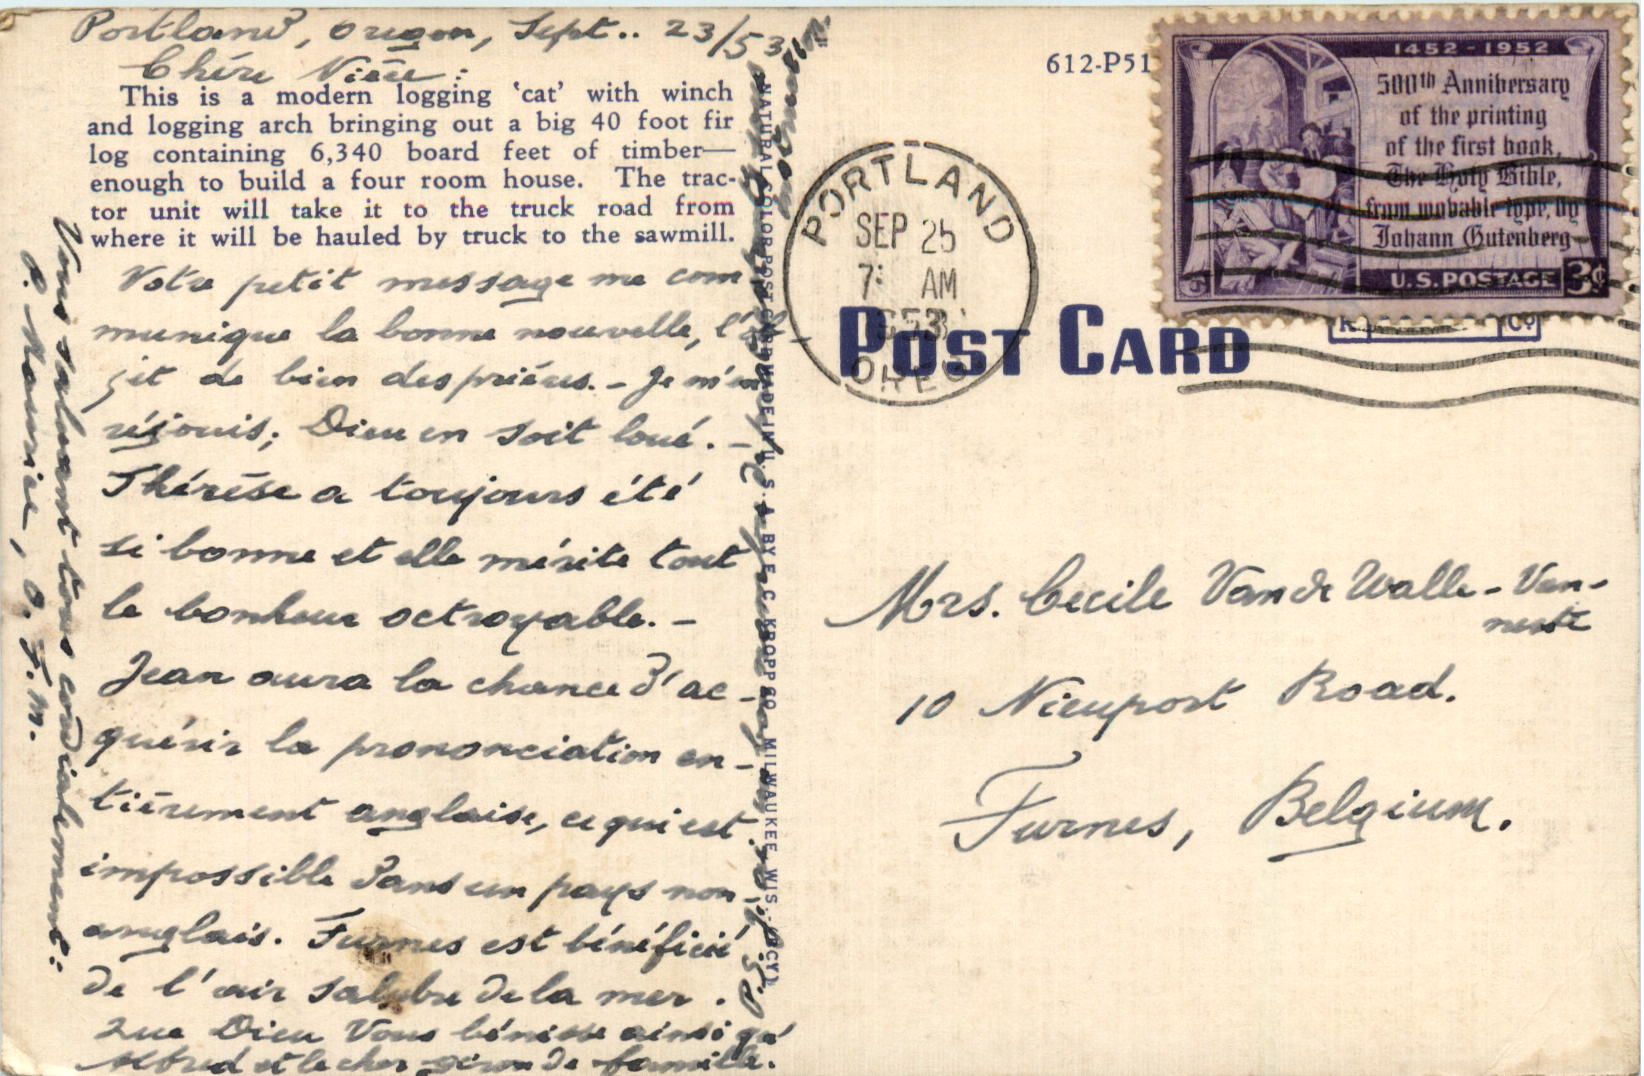 Portland, Oregon, Sept.. 23/53
Chère Nièce :
This is a modern logging 'cat' with winch
and logging arch bringing out a big 40 foot fir
log containing 6,340 board feet of timber—
enough to build a four room house. The trac-
tor unit will take it to the truck road from
where it will be hauled by truck to the sawmill.
Votre petit message me com
munique la bonne nouvelle,
de bien des prières. – Je m'en
réjouis; Dieu en soit loué. –
Thérèse a toujours été
si bonne et elle mérite tout
le bonheur octroyable. –
Jean aura la chance d'ac-
quérir la prononciation en-
tièrement anglaise, ce qui est
impossible dans un pays non
anglais. Furnes est bénéficié
de l'air salubre de la mer.
Que Dieu Vous bénisse ainsi qu'
Alfred et le cher de famille.
Vous saluant tous cordialement:
P. Maurice, O.F.M.
NATURAL COLOR POST CARD MADE IN U. S. A. BY E. C. KROPP CO. MILWAUKEE, WIS.
612-P51
POST CARD
PORTLAND
SEP 25
7: AM
1953
OREG
1452-1952
500th Anniversary
of the printing
of the first book,
The Holy Bible,
from movable type, by
Johann Gutenberg
U.S. POSTAGE 3¢
Mrs. Cecile Van de Walle - Van-
neste
10 Nieuport Road.
Furnes, Belgium.